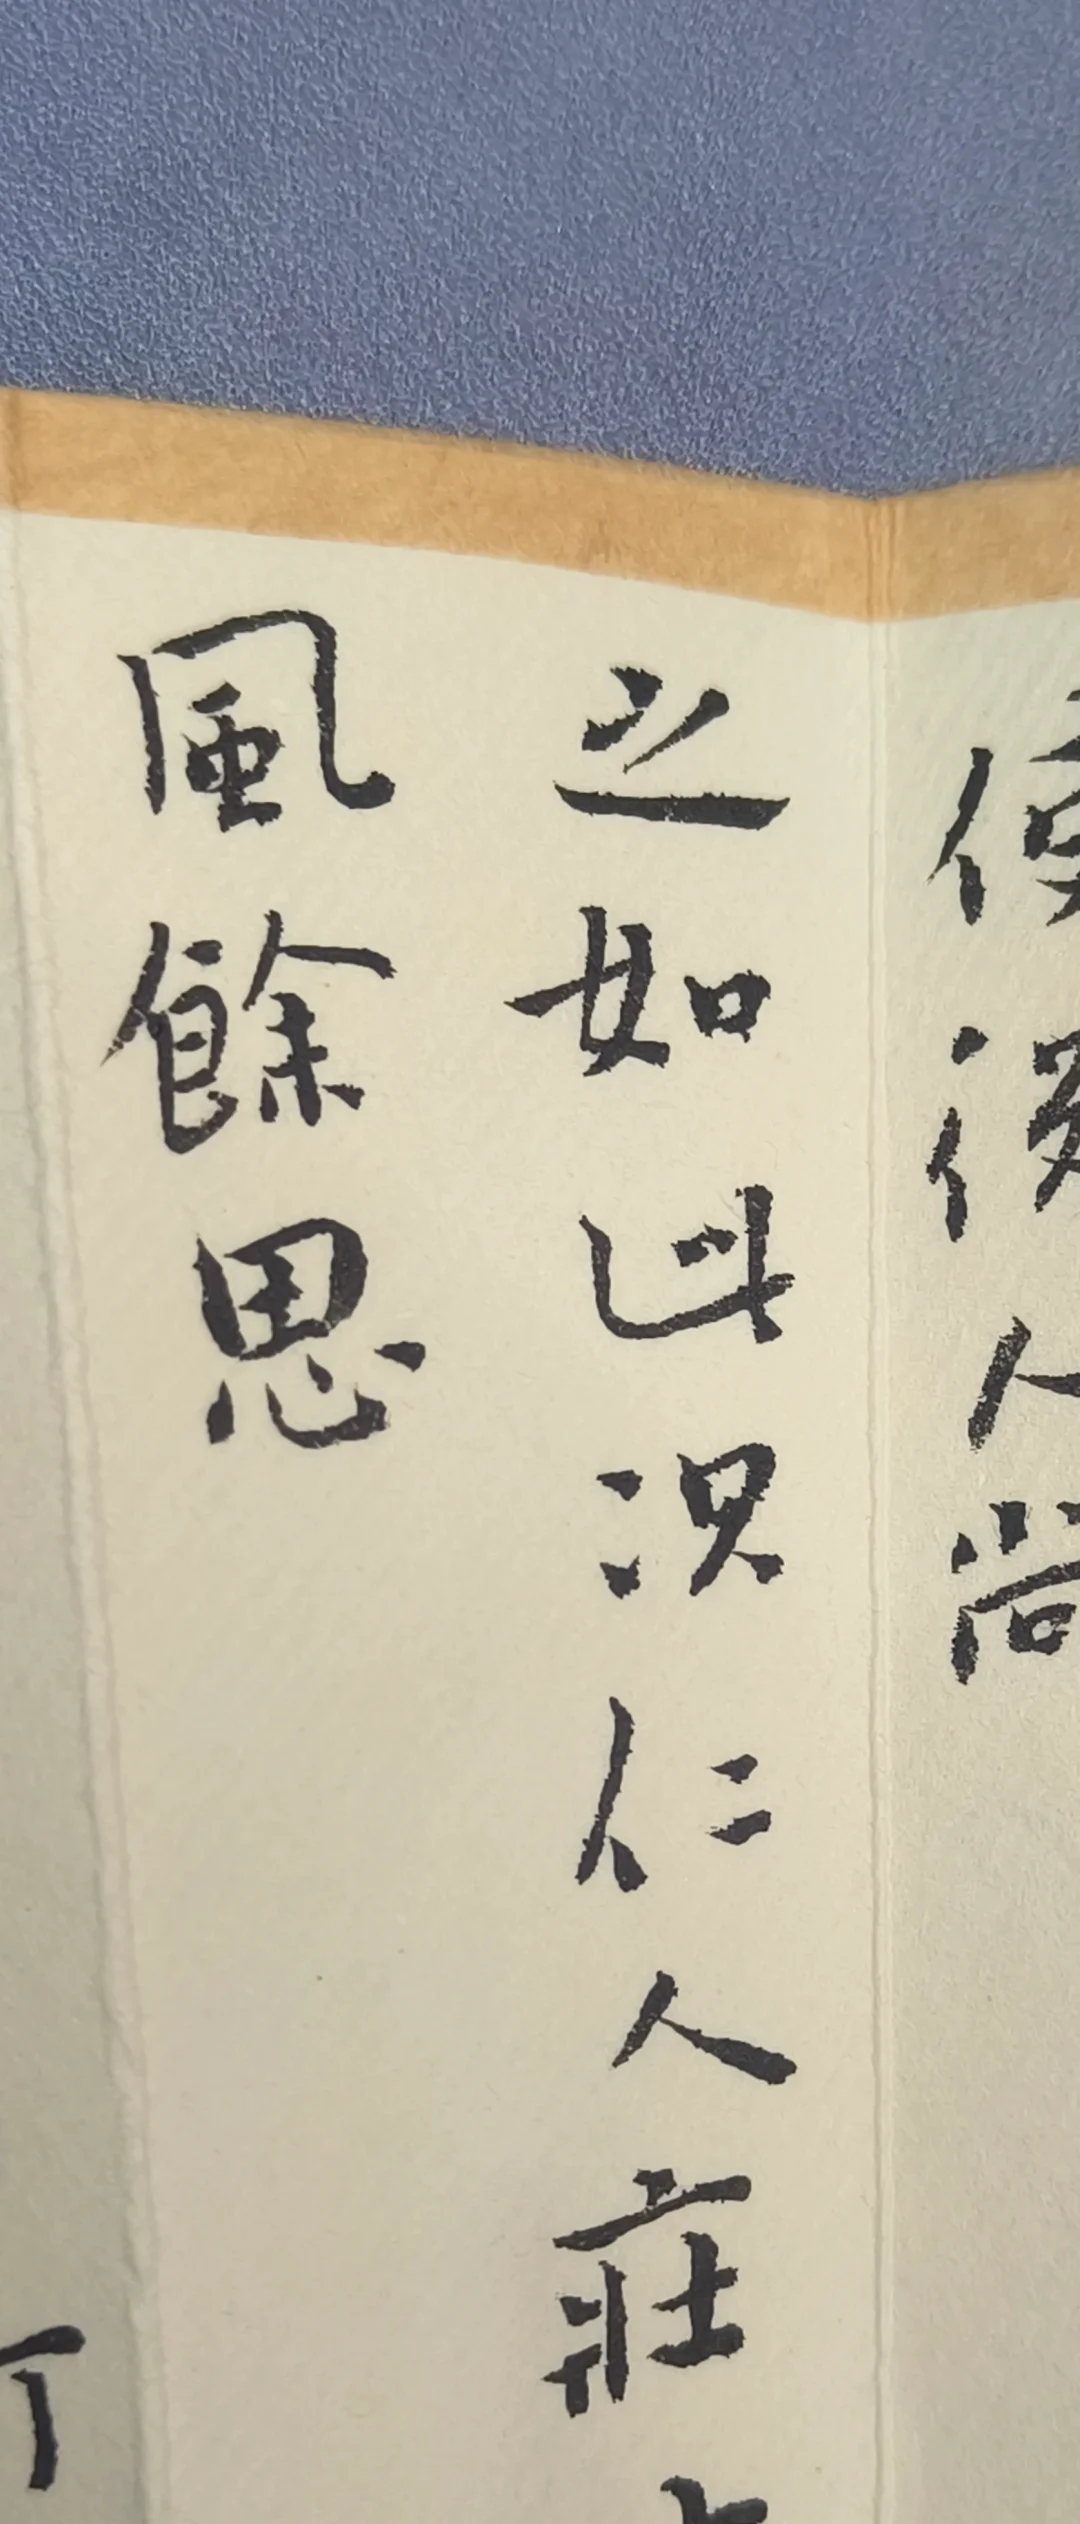 使後人尚
之如此况仁人莊
風餘思
丁